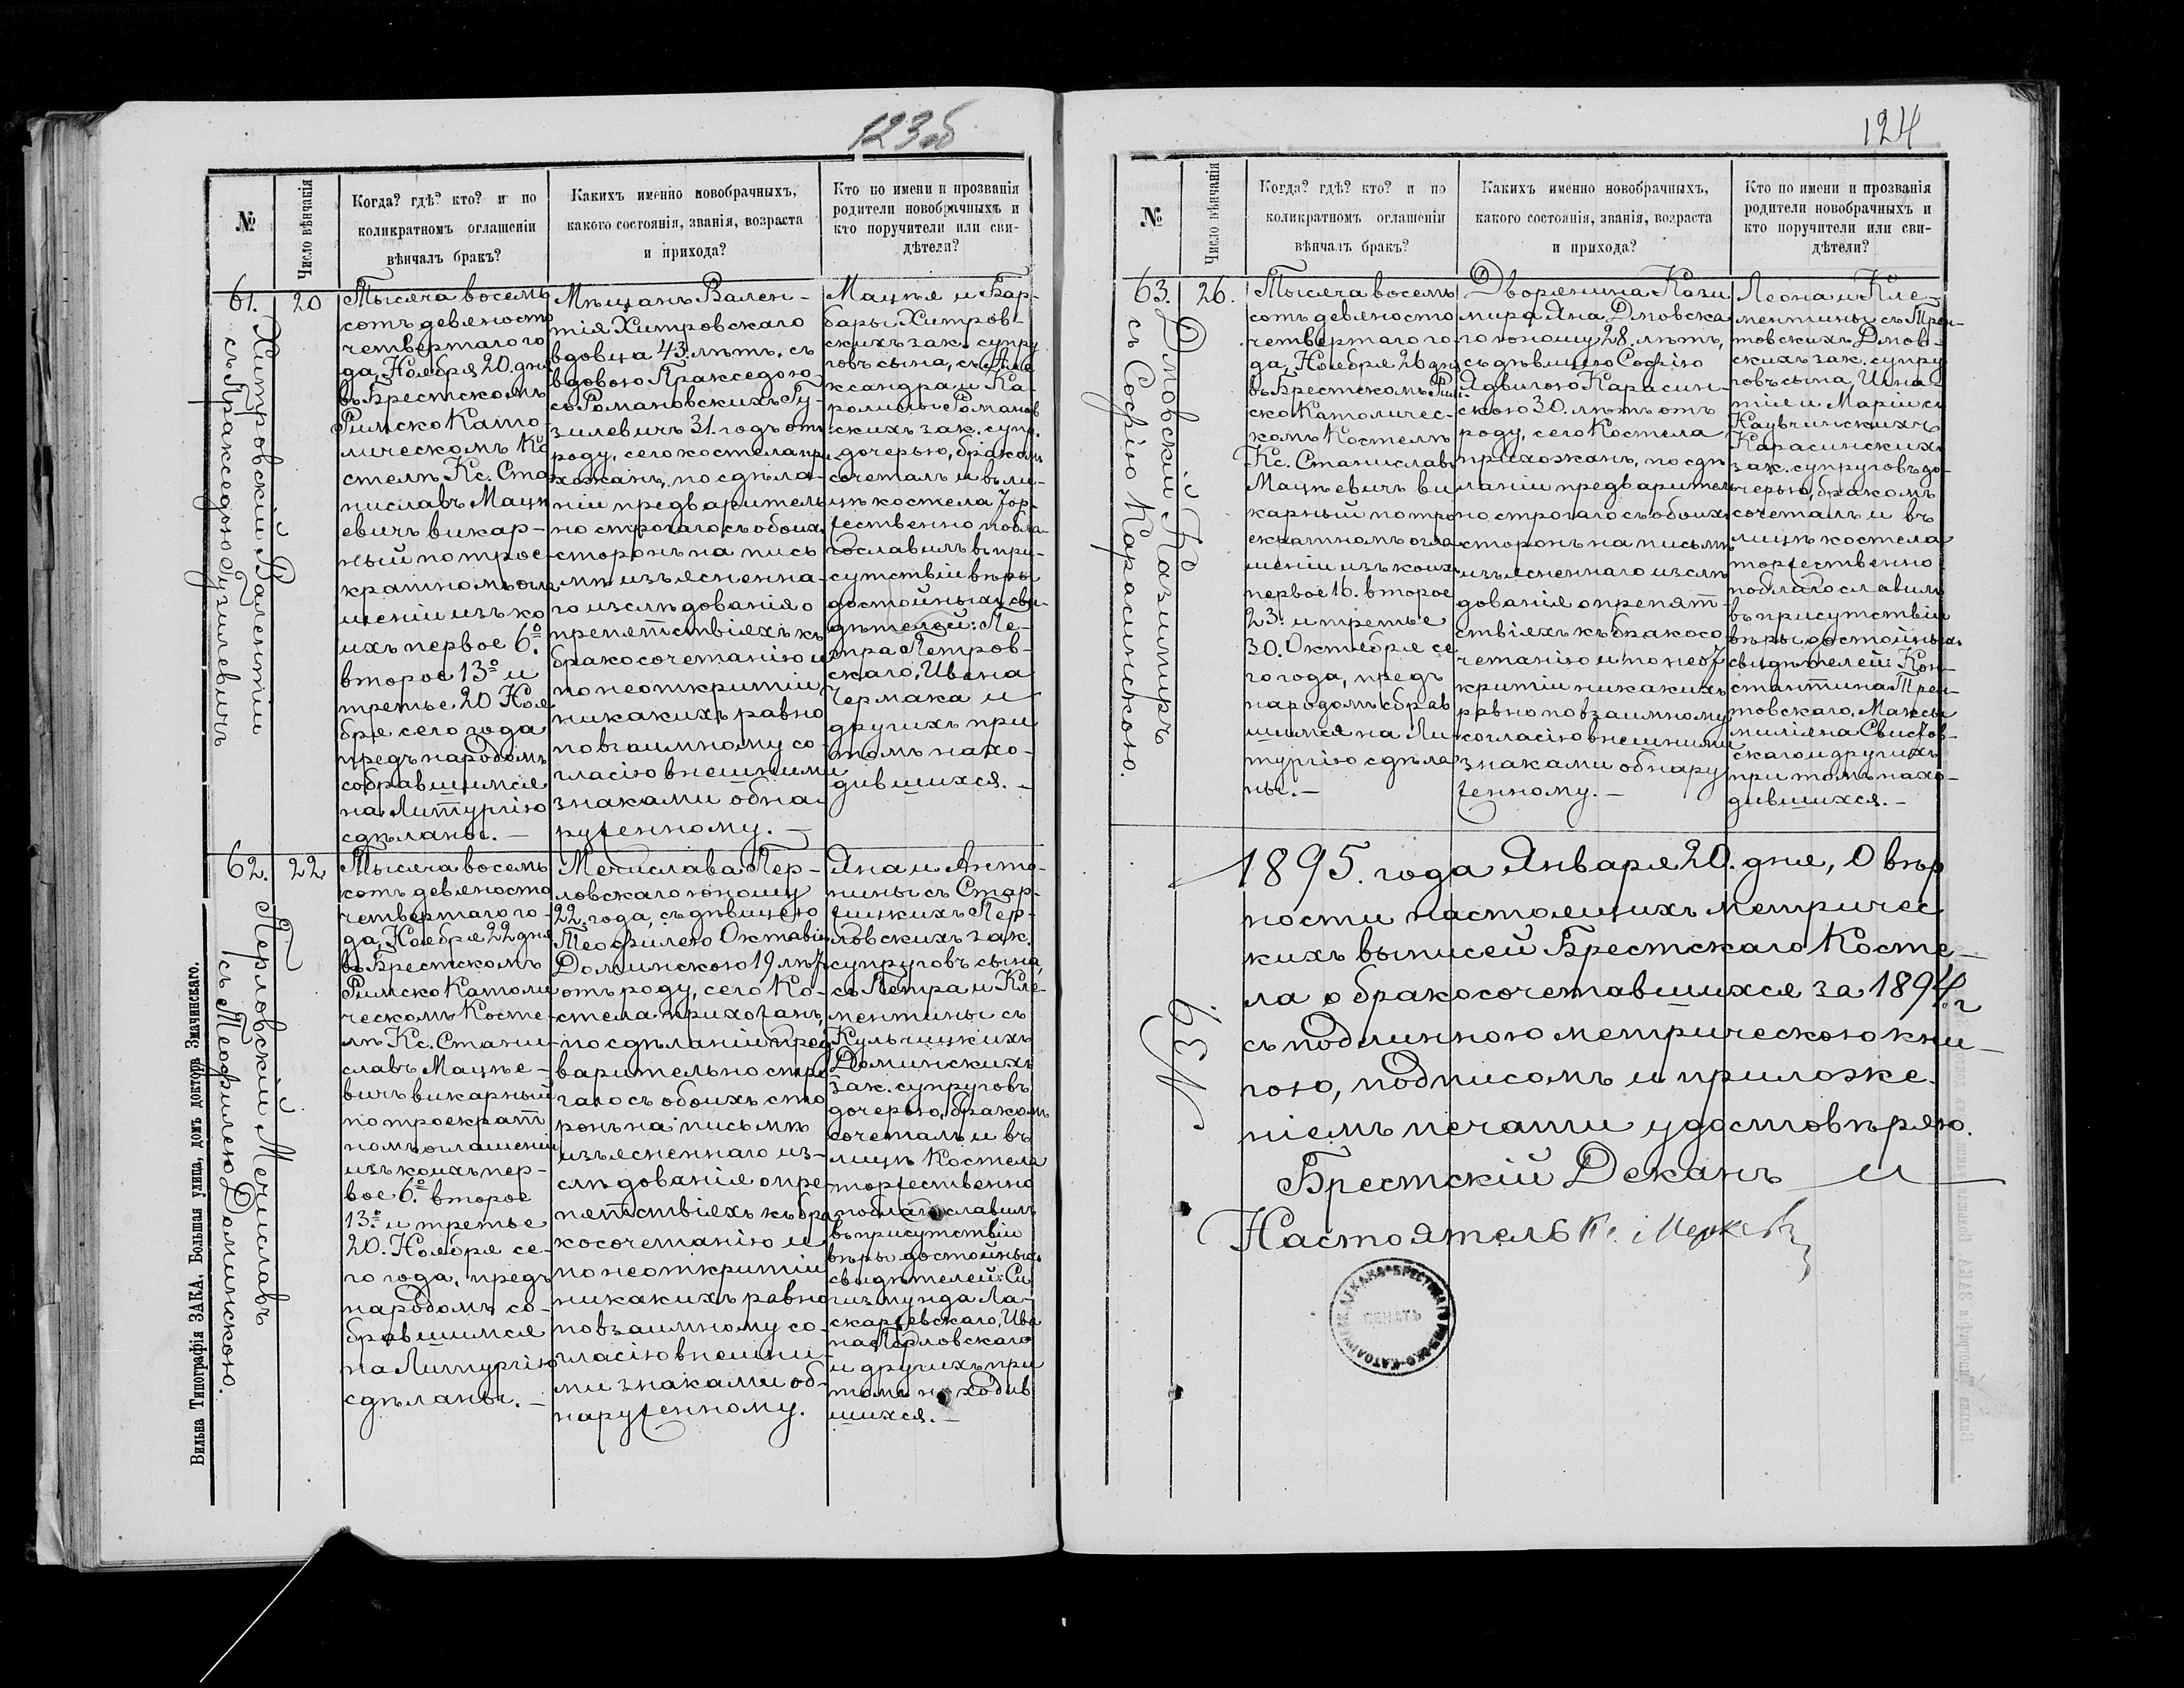 123об
№
Число вѣнчанія
Когда? гдѣ? кто? и по
коликратномъ оглашеніи
вѣнчалъ бракъ?
Какихъ именно новобрачныхъ,
какого состоянія, званія, возраста
и прихода?
Кто по имени и прозванія
родители новобрачныхъ и
кто поручители или сви-
дѣтели?
61.
Хитровскій Валентій
съ Пракседою Гузилевичъ
20
Тысяча восемь
сотъ девяносто
четвертаго го
да, Ноября 20. дня
въ Брестскомъ
Римско Като
лическомъ Ко
стелѣ Кс. Ста
ниславъ Мацѣ
евичъ викар-
ный по трое-
кратномъ огла
шеніи изъ ко
ихъ первое 6º.
второе 13º и
третье 20 Ноя
бря сего года
предъ народомъ
собравшимся
на Литургію
сдѣланы.-
Мѣщанъ Вален-
тія Хитровскаго
вдовца 43. лѣтъ, съ
вдовою Пракседою
съ Романовскихъ Гу-
зилевичъ 31. годъ отъ
роду, сего костела при
хожанъ, по сдѣла-
ніи предваритель
но строгаго съ обоихъ
сторонъ на пись
мѣ изъясненна-
го изслѣдованія о
препятствіяхъ къ
бракосочетанію и
по неоткрытіи
никакихъ равно
по взаимному со-
гласію внешними
знаками обна-
руженному.-
Мацѣя и Бар-
бары Хитров-
скихъ зак. супру
говъ сына, съ Але
ксандра и Ка-
ролины Романов
скихъ зак. супр.
дочерью, бракомъ
сочеталъ и въ ли-
цѣ костела тор-
жественно побла-
гославилъ въ при-
сутствіи вѣры
достойныхъ сви-
дѣтелей: Пе-
тра Петров-
скаго, Ивана
Чермака и
другихъ при
томъ нахо-
дившихся.-
62.
Перловскій Мечиславъ
съ Теофилею Доминскою.
22
Тысяча восемь
сотъ девяносто
четвертаго го-
да, Ноября 22 дня
въ Брестскомъ
Римско Католи
ческомъ Косте-
лѣ Кс. Стани-
славъ Мацѣе-
вичъ викарный
по троекрат
номъ оглашеніи
изъ коихъ пер-
вое 6º. второе
13º. и третье
20. Ноября се-
го года, предъ
народомъ со-
бравшимся
на Литургію
сдѣланы.-
Мечислава Пер-
ловскаго юношу
22. года, съ дѣвицею
Теофилею Октавіею
Доминскою 19 лѣтъ
отъ роду, сего Ко-
стела прихожанъ,
по сдѣланіи пред
варительно стро
гаго съ обоихъ сто
ронъ на письмѣ
изъясненнаго из-
слѣдованія о пре-
пятствіяхъ къ бра
косочетанію и
по неоткрытіи
никакихъ равно
по взаимному со-
гласію внешни-
ми знаками об-
наруженному.
Яна и Анто-
нины съ Стар-
жицкихъ Пер-
ловскихъ зак.
супруговъ сына,
съ Петра и Кле-
ментины съ
Кульчицкихъ
Доминскихъ
зак. супруговъ
дочерью, бракомъ
сочеталъ и въ
лицѣ Костела
торжественно
поблагославилъ
въ присутствіи
вѣры достойныхъ
свидѣтелей: Си
гизмунда Ла-
скаржевскаго, Ива
на Перловскаго
и другихъ при
томъ находив
шихся.-
Вильна Типографія ЗАКА. Большая улица, домъ доктора Змачинскаго.
124
№
Число вѣнчанія
Когда? гдѣ? кто? и по
коликратномъ оглашеніи
вѣнчалъ бракъ?
Какихъ именно новобрачныхъ,
какого состоянія, званія, возраста
и прихода?
Кто по имени и прозванія
родители новобрачныхъ и
кто поручители или сви-
дѣтели?
63.
Дмовскій Казимиръ
съ Софіею Карасинскою.
26.
Тысяча восемь
сотъ девяносто
четвертаго го-
да, Ноября 26 дня
въ Брестскомъ Рим-
ско Католичес-
комъ Костелѣ
Кс. Станиславъ
Мацѣевичъ ви
карный по тро
екратномъ огла
шеніи изъ коихъ
первое 16. второе
23. и третье
30. Октября се
го года, предъ
народомъ собрав
шимся на Ли-
тургію сдѣла
ны.-
Дворянина Кази
мира Яна Дмовска
го юношу 28. лѣтъ,
съ дѣвицею Софіею
Ядвигою Карасин-
скою 30. лѣтъ отъ
роду, сего Костела
прихожанъ, по сдѣ
ланіи предваритель
но строгаго съ обоихъ
сторонъ на письмѣ
изъясненнаго изслѣ
дованія о препят-
ствіяхъ къ бракосо
четанію и по неот
крытіи никакихъ
равно по взаимному
согласію внешними
знаками обнару
женному.-
Леона и Кле-
ментины съ Трем-
товскихъ Дмов-
скихъ зак. супру
говъ сына, Игна-
тія и Маріи съ
Карасинскихъ
зак. супруговъ до-
черью, бракомъ
сочеталъ и въ
лицѣ костела
торжественно
поблагославилъ
въ присутствіи
вѣры достойныхъ
свидѣтелей: Кон-
стантина Трем-
товскаго, Макси
миліяна Свистов-
скаго и другихъ
при томъ нахо-
дившихся.-
№ 39
1895. года Января 20. дня, О вѣр
ности настоящихъ метричес
кихъ выписей Брестскаго Косте-
ла о бракосочетавшихся за 1894 г.
съ подлинною метрическою кни-
гою, подписомъ и приложе-
ніемъ печати удостовѣряю.
Брестскій Деканъ и
Настоятель
ПЕЧАТЬ